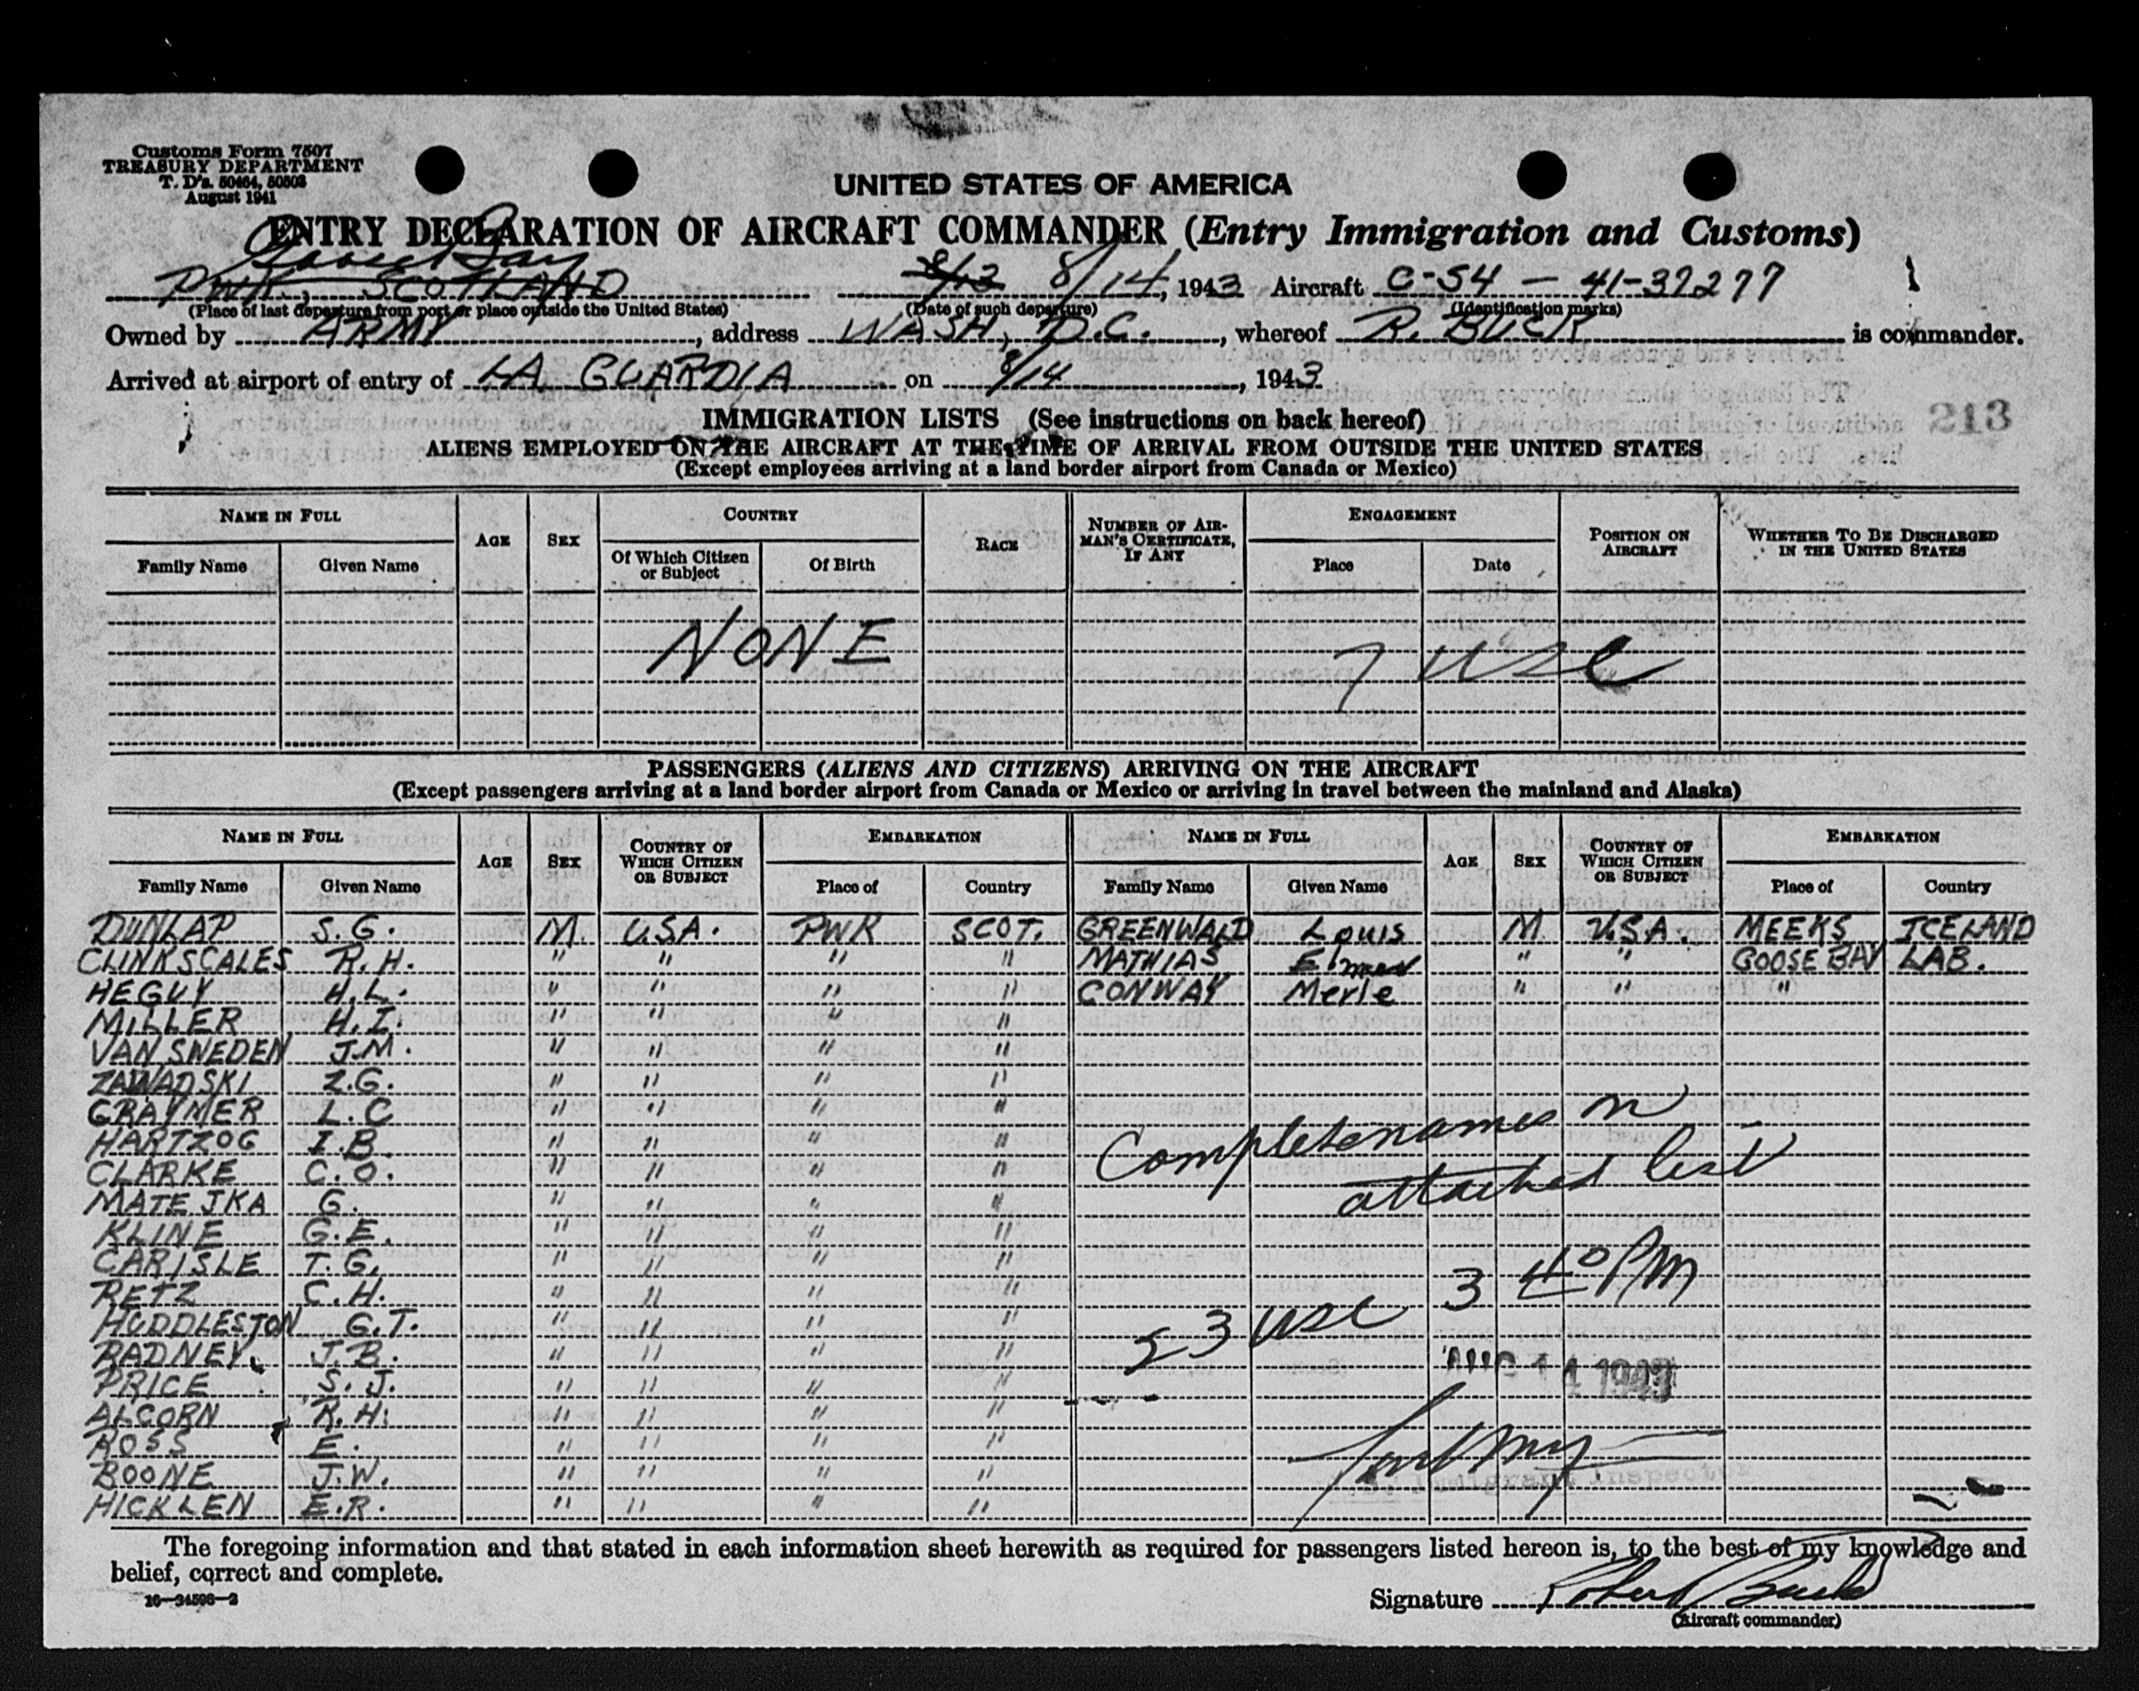 Customs Form 7507
TREASURY DEPARTMENT
T. D's. 50464, 50503
August 1941
UNITED STATES OF AMERICA
ENTRY DECLARATION OF AIRCRAFT COMMANDER (Entry Immigration and Customs)
Goose Bay
PWK, SCOTLAND 8/13 8/14, 1943 Aircraft C-54 - 41-37277
(Place of last departure from port or place outside the United States) (Date of such departure) (Identification marks)
Owned by ARMY, address WASH, D.C., whereof R. BUCK is commander.
Arrived at airport of entry of LA GUARDIA on 8/14, 1943
213
IMMIGRATION LISTS (See instructions on back hereof)
ALIENS EMPLOYED ON THE AIRCRAFT AT THE TIME OF ARRIVAL FROM OUTSIDE THE UNITED STATES
(Except employees arriving at a land border airport from Canada or Mexico)
NAME IN FULL AGE SEX COUNTRY RACE NUMBER OF AIRMAN'S CERTIFICATE, IF ANY ENGAGEMENT POSITION ON AIRCRAFT WHETHER TO BE DISCHARGED IN THE UNITED STATES
Family Name Given Name Of Which Citizen or Subject Of Birth Place Date
NONE 7 USC
PASSENGERS (ALIENS AND CITIZENS) ARRIVING ON THE AIRCRAFT
(Except passengers arriving at a land border airport from Canada or Mexico or arriving in travel between the mainland and Alaska)
NAME IN FULL AGE SEX COUNTRY OF WHICH CITIZEN OR SUBJECT EMBARKATION NAME IN FULL AGE SEX COUNTRY OF WHICH CITIZEN OR SUBJECT EMBARKATION
Family Name Given Name Place of Country Family Name Given Name Place of Country
DUNLAP S. G. M. U.S.A. PWK SCOT. GREENWALD Louis M U.S.A. MEEKS ICELAND
CLINKSCALES R. H. " " " " MATHIAS Elmer " " GOOSE BAY LAB.
HEGUY H. L. " " " " CONWAY Merle " " "
MILLER H. I. " " " "
VAN SWEDEN J.M. " " " "
ZAWADSKI Z.G. " " " "
GRAYMER L. C " " " "
HARTZOG I. B. " " " "
CLARKE C. O. " " " "
MATEJKA G. " " " "
KLINE G. E. " " " "
CARISLE T. G. " " " "
RETZ C. H. " " " "
HUDDLESTON G. T. " " " "
RADNEY J. B. " " " "
PRICE S. J. " " " "
ALCORN R. H. " " " "
ROSS E. " " " "
BOONE J. W. " " " "
HICKLEN E. R. " " " "
Complete names on
attached list
3 40 PM
23 USC
AUG 14 1943
Immigrant Inspector
The foregoing information and that stated in each information sheet herewith as required for passengers listed hereon is, to the best of my knowledge and
belief, correct and complete.
16-34508-2
Signature Robert Buck
(Aircraft commander)